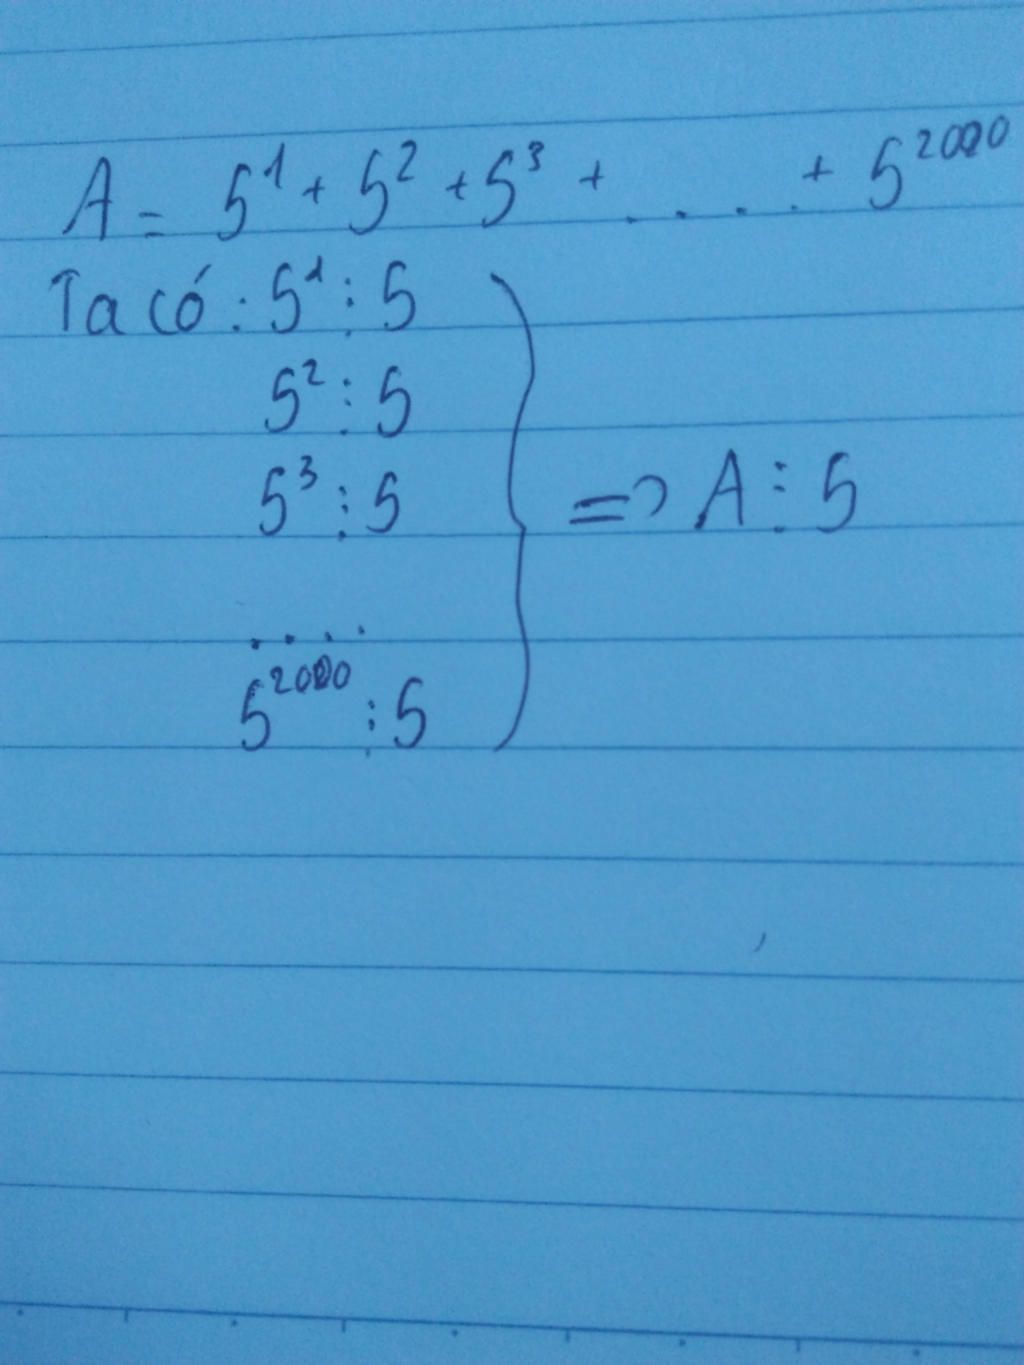 A = 5¹ + 5² + 5³ + .... + 5²⁰²⁰
Ta có : 5¹ ⋮ 5
5² ⋮ 5
5³ ⋮ 5
=> A ⋮ 5
....
5²⁰²⁰ ⋮ 5